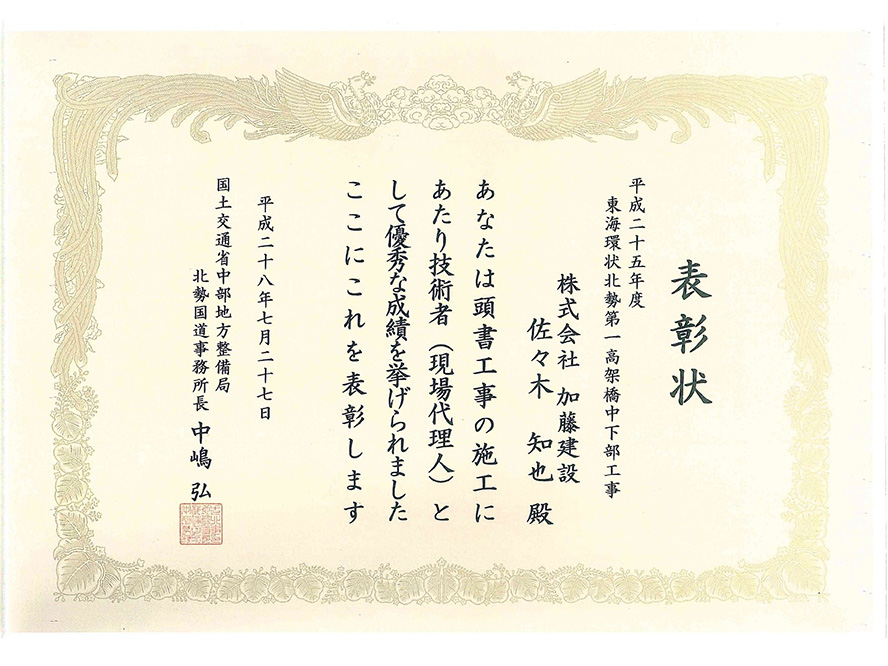 表彰状
平成二十五年度
東海環状北勢第一高架橋中下部工事
株式会社 加藤建設
佐々木 知也 殿
あなたは頭書工事の施工に
あたり技術者（現場代理人）と
して優秀な成績を挙げられました
ここにこれを表彰します
平成二十八年七月二十七日
国土交通省中部地方整備局
北勢国道事務所長 中嶋 弘